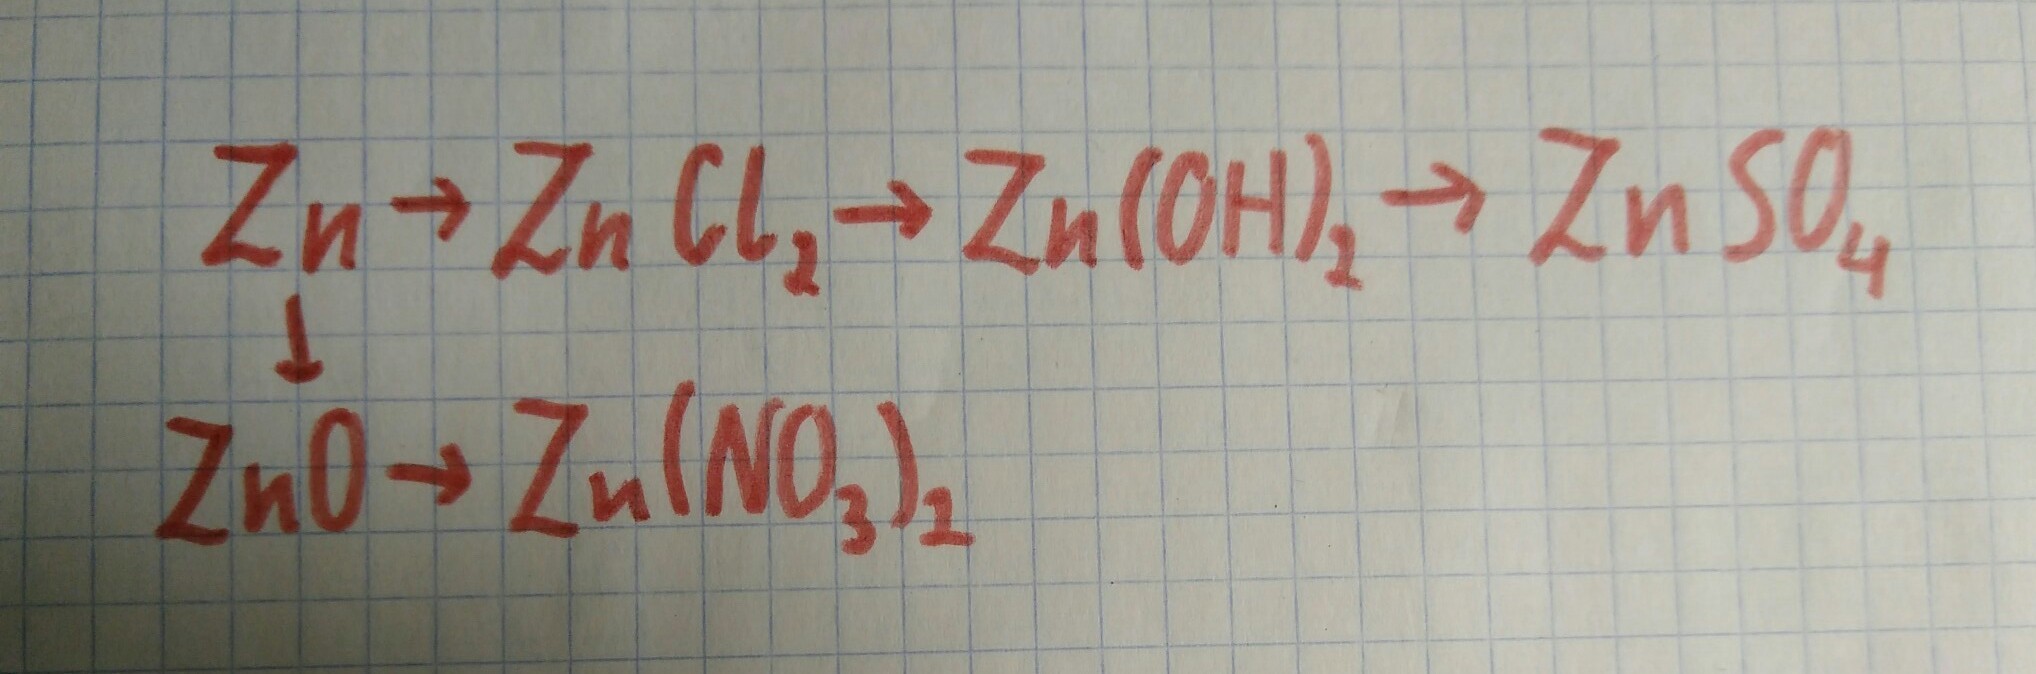 Zn → ZnCl₂ → Zn(OH)₂ → ZnSO₄
↓
ZnO → Zn(NO₃)₂